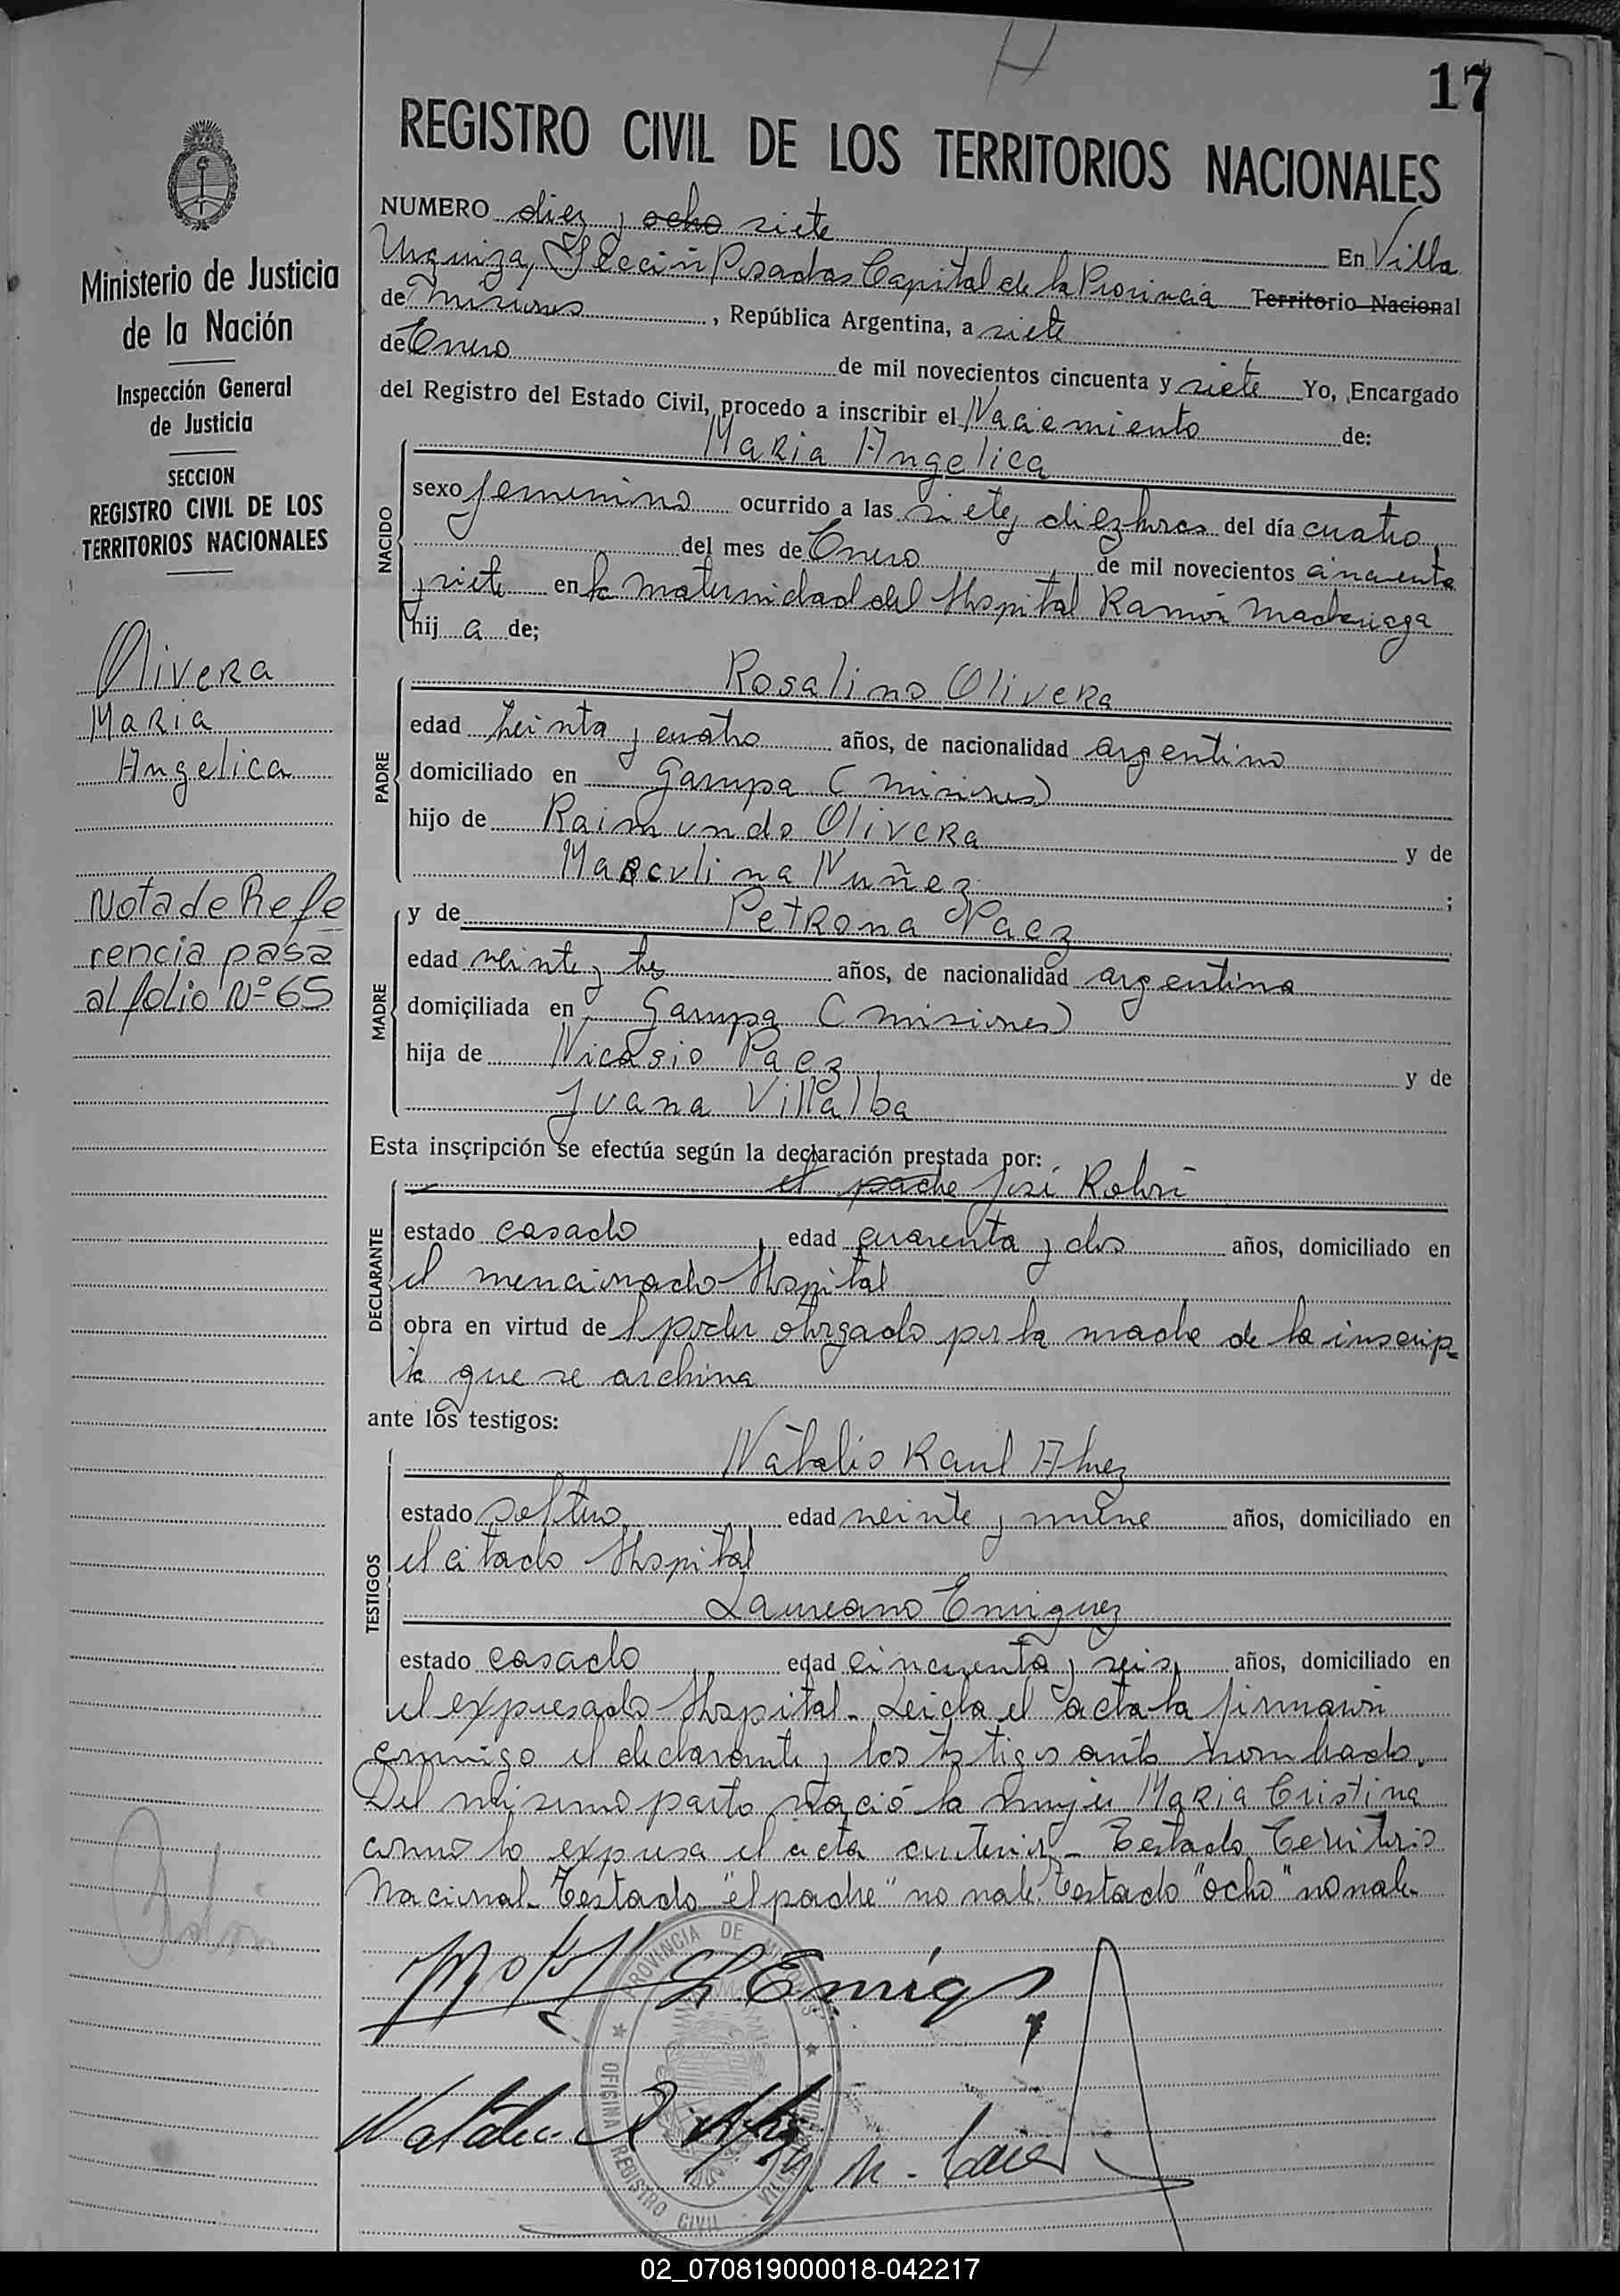 17
REGISTRO CIVIL DE LOS TERRITORIOS NACIONALES
NUMERO diez y ocho siete En Villa
Urquiza, Sección Posadas Capital de la Provincia Territorio Nacional
de Misiones, República Argentina, a siete
de Enero de mil novecientos cincuenta y siete Yo, Encargado
del Registro del Estado Civil, procedo a inscribir el Nacimiento de:
Maria Angelica
NACIDO
sexo femenino ocurrido a las siete y diez horas del día cuatro
del mes de Enero de mil novecientos cincuenta
y siete en la maternidad del Hospital Ramón Madariaga
hij a de;
Rosalino Olivera
PADRE
edad treinta y cuatro años, de nacionalidad argentino
domiciliado en Garupa (Misiones)
hijo de Raimundo Olivera y de
Marculina Nuñez;
MADRE
y de Petrona Paez
edad veinte y tres años, de nacionalidad argentina
domiciliada en Garupa (Misiones)
hija de Nicasio Paez y de
Juana Villalba
Esta inscripción se efectúa según la declaración prestada por:
el padre José
DECLARANTE
estado casado, edad cuarenta y dos años, domiciliado en
el mencionado Hospital
obra en virtud de l poder otorgado por la madre de la inscrip-
ta que se archiva
ante los testigos:
Natalio Raul
TESTIGOS
estado soltero edad veinte y nueve años, domiciliado en
el citado Hospital
Laureano Enriquez
estado casado edad cincuenta y seis años, domiciliado en
el expresado Hospital. Leida el acta la firmaron
conmigo el declarante y los testigos antes nombrado.
Del mismo parto nació la mujer Maria Cristina
como lo expresa el acta anterior - Testado Territorio
Nacional. Testado "el padre" no vale. Testado "ocho" no vale-
Ministerio de Justicia
de la Nación
Inspección General
de Justicia
SECCION
REGISTRO CIVIL DE LOS
TERRITORIOS NACIONALES
Olivera
Maria
Angelica
Nota de Refe
rencia pasa
al folio Nº 65
PROVINCIA DE MISIONES
OFICINA REGISTRO CIVIL
02_070819000018-042217